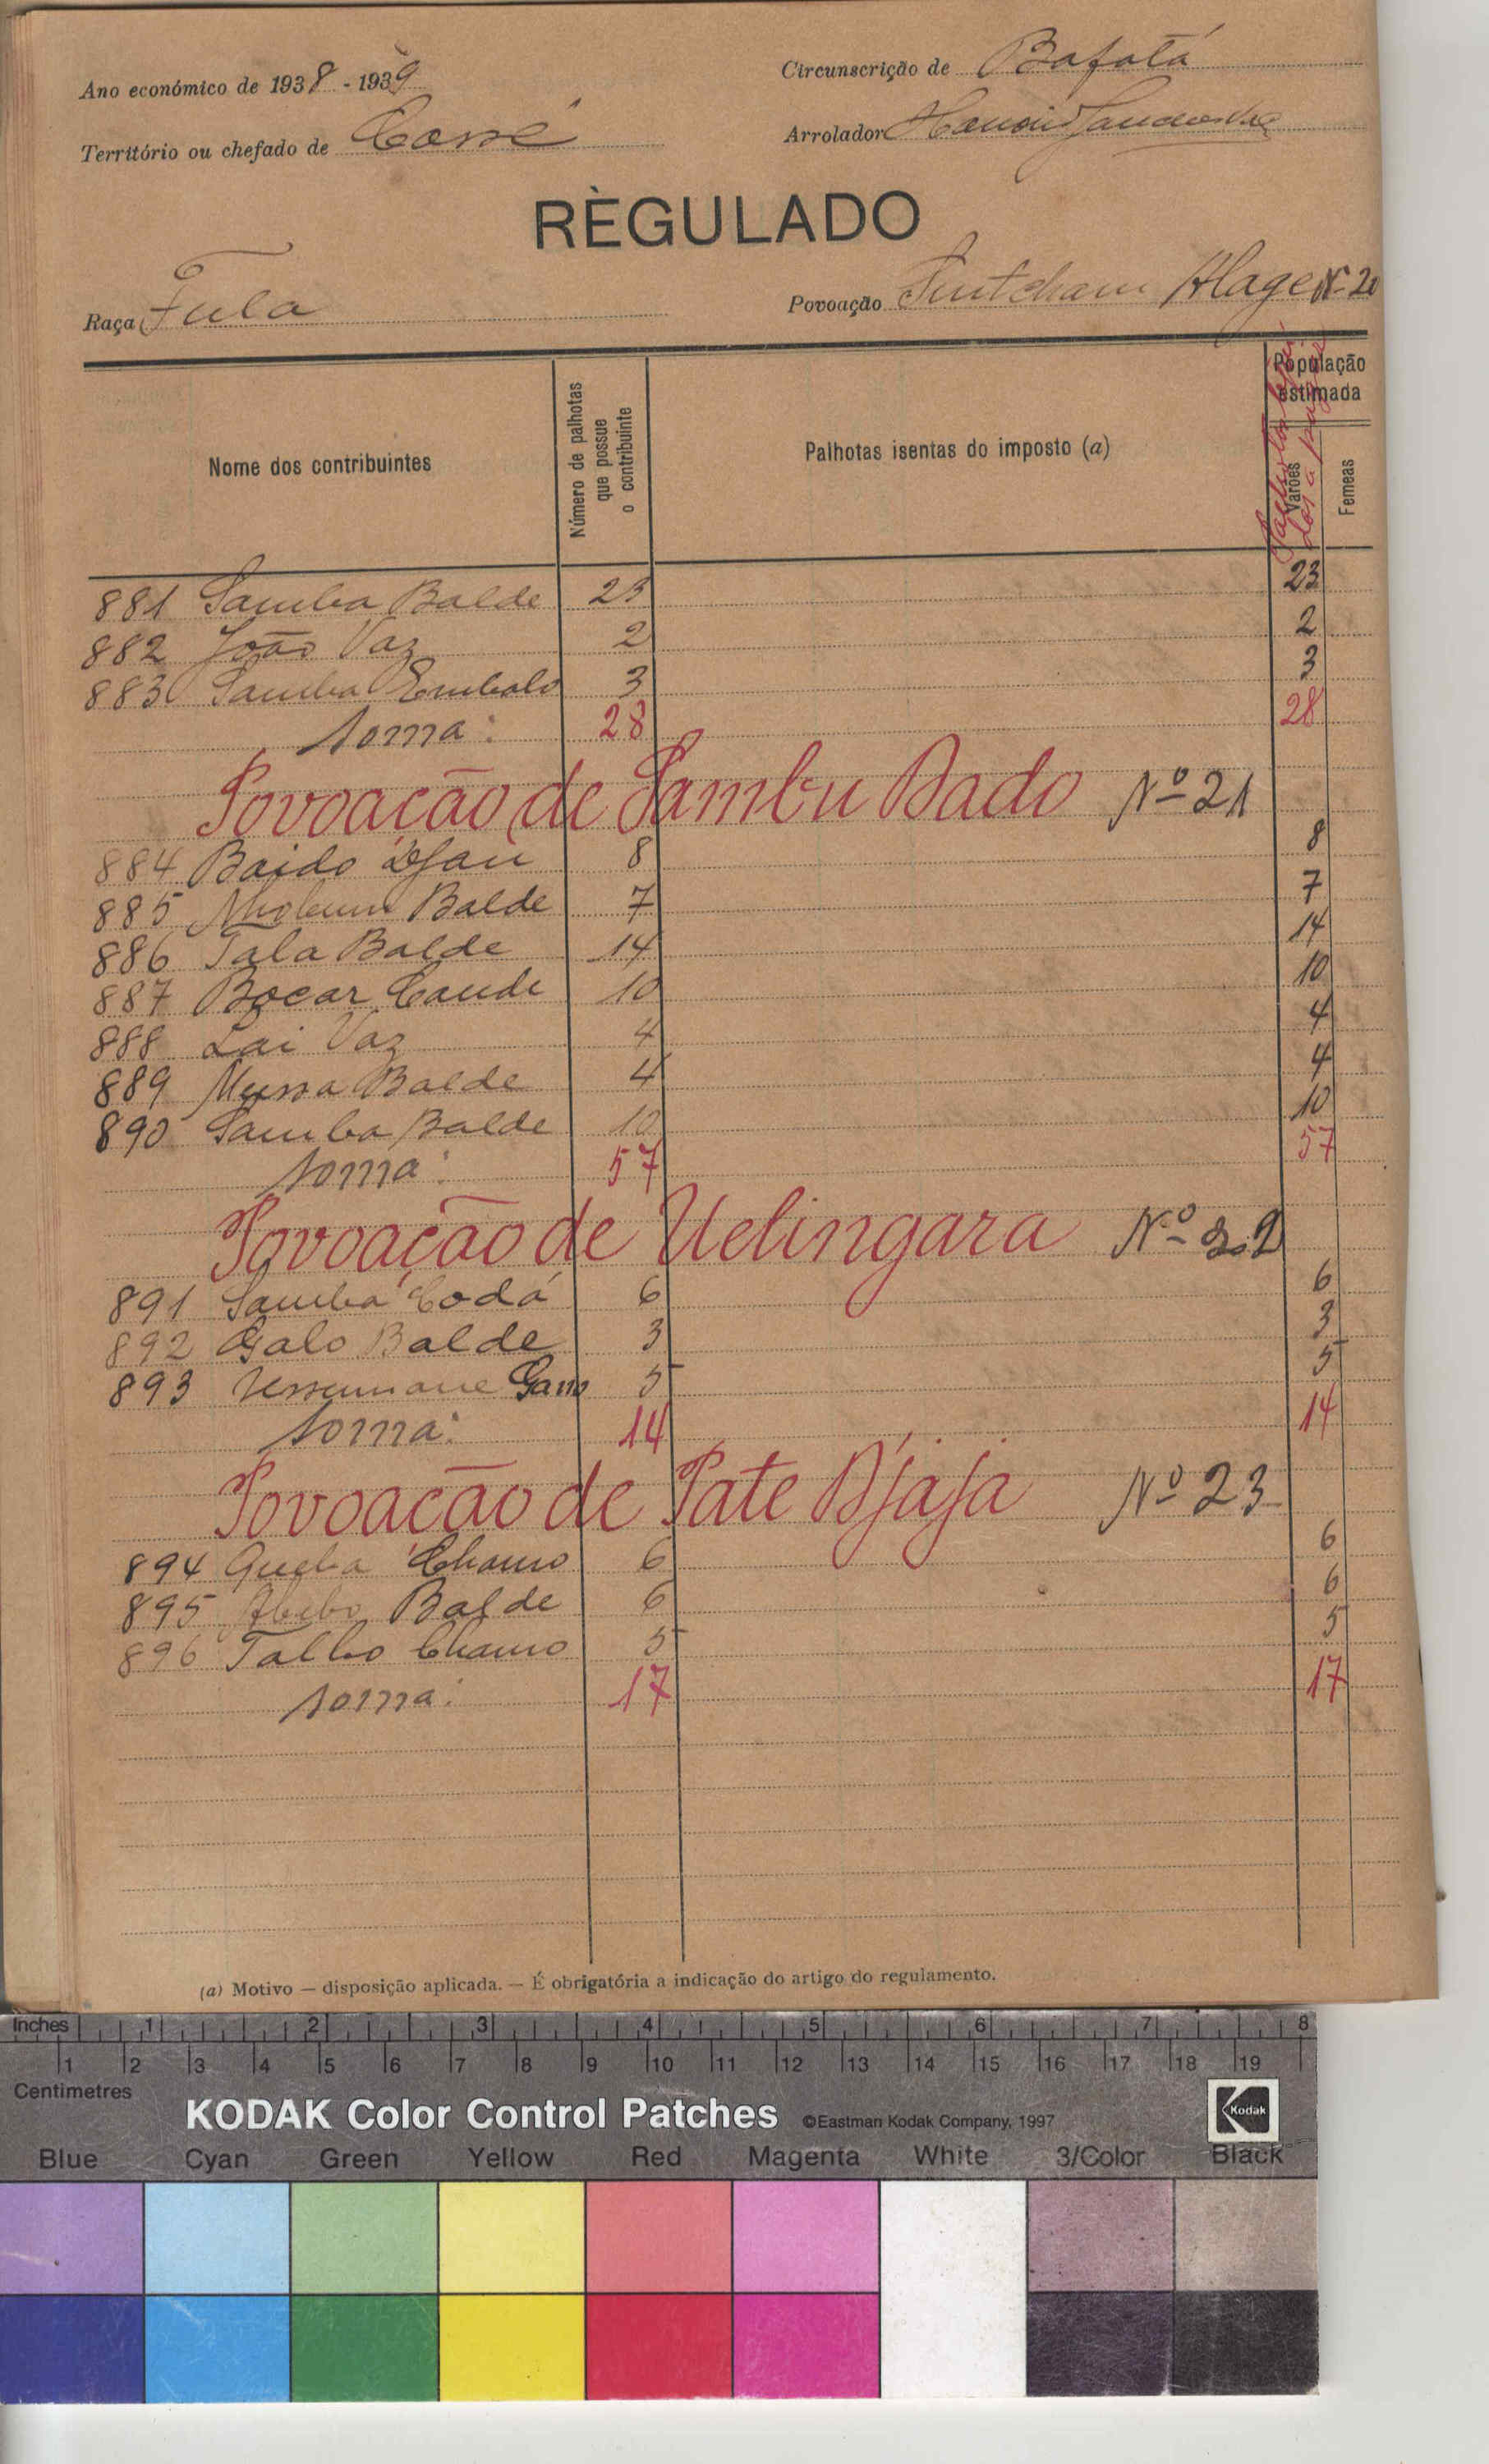 Ano económico de 1938 - 1939
Circunscrição de Bafatá
Território ou chefado de Cossé
Arrolador
RÈGULADO
Raça Fula
Povoação Sintcham Alage Nº 20
Nome dos contribuintes
Número de palhotas que possue o contribuinte
Palhotas isentas do imposto (a)
População estimada
Varões
Femeas
881 Samba Balde 23 23
882 João Vaz 2 2
883 Samba Embalo 3 3
Soma: 28 28
Povoação de Sambu Dado Nº 21
884 Baido Djau 8 8
885 Balde 7 7
886 Tala Balde 14 14
887 Bocar Cande 10 10
888 Lai Vaz 4 4
889 Mussa Balde 4 4
890 Samba Balde 10 10
Soma: 57 57
Povoação de Uelingara Nº 22
891 Samba Codá 6 6
892 Galo Balde 3 3
893 Ussumane Gano 5 5
Soma: 14 14
Povoação de Pate Djaja Nº 23
894 Queba Chamo 6 6
895 Balde 6 6
896 Talho Chamo 5 5
Soma: 17 17
(a) Motivo — disposição aplicada. — É obrigatória a indicação do artigo do regulamento.
Inches 1 2 3 4 5 6 7 8
1 2 3 4 5 6 7 8 9 10 11 12 13 14 15 16 17 18 19
Centimetres
KODAK Color Control Patches ©Eastman Kodak Company, 1997 Kodak
Blue Cyan Green Yellow Red Magenta White 3/Color Black